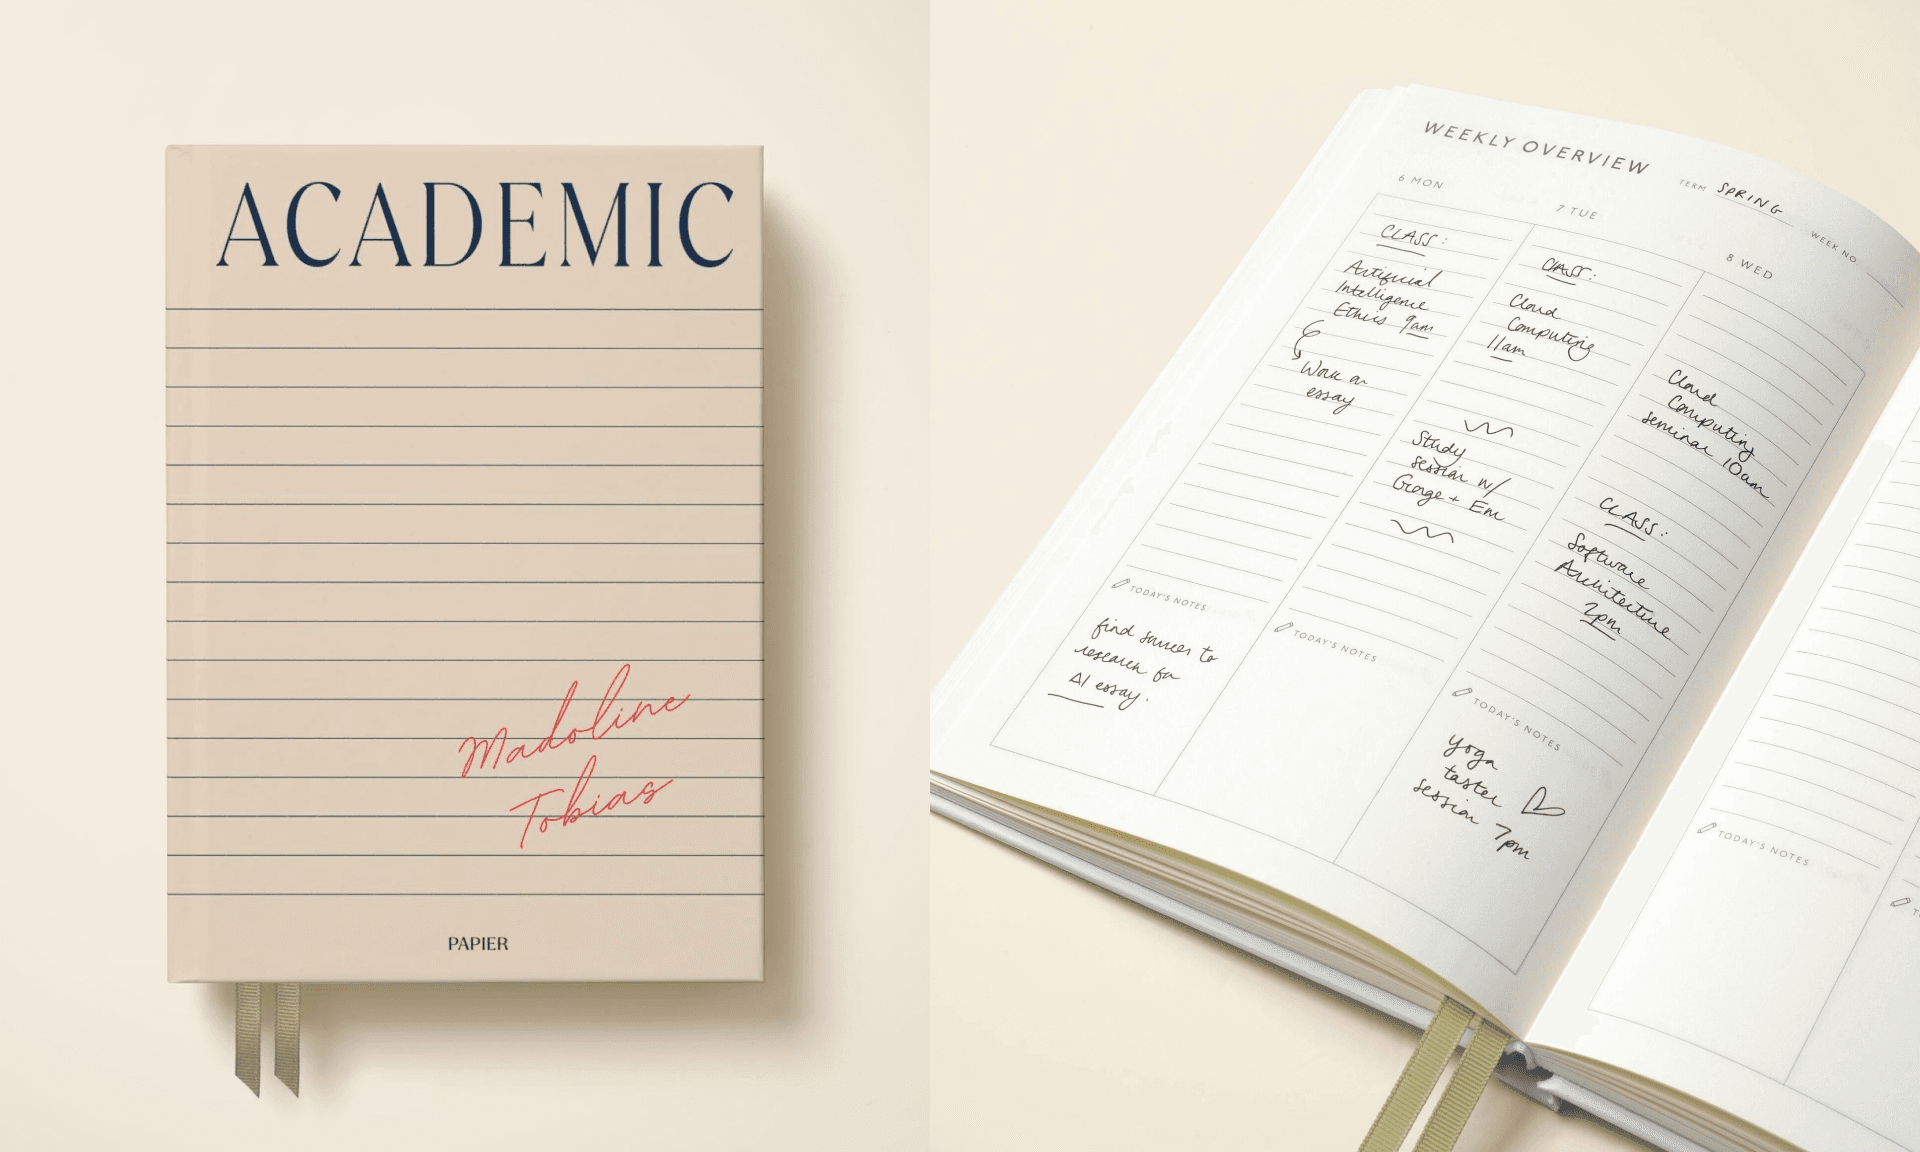 ACADEMIC
Madoline
Tobias
PAPIER
WEEKLY OVERVIEW
TERM SPRING
WEEK NO.
6 MON
CLASS:
Artificial
Intelligence
Ethics 9am
Work on
essay
TODAY'S NOTES
find sources to
research for
AI essay.
7 TUE
CLASS:
Cloud
Computing
11am
Study
session w/
George + Em
TODAY'S NOTES
8 WED
Cloud
Computing
seminar 10am
CLASS:
Software
Architecture
2pm
TODAY'S NOTES
yoga
taster
session 7pm
TODAY'S NOTES